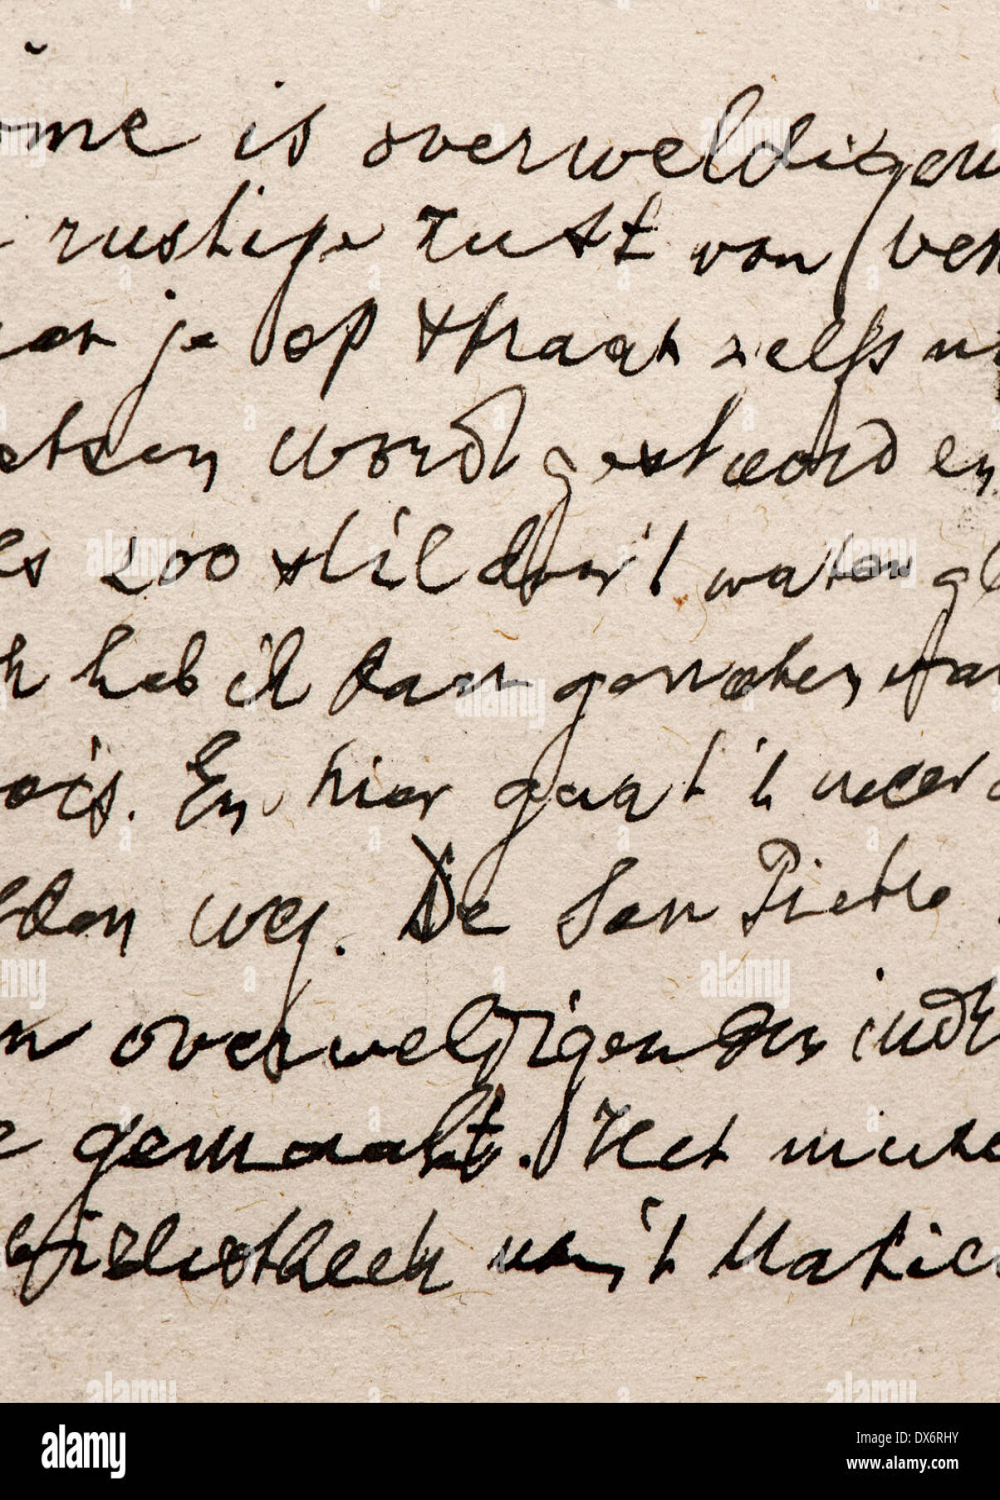 ome is overweldigen
rustige rust van Ven
je op straat zelfs
etsen wordt gestoord en
es zoo stil door 't water gl
k heb ik daar genoten van
ois. En hier gaat 't weer
den weg. De San Pietro
n overweldigenden indr
e gemaakt. Het muse
bibliotheek van 't Vatica
alamy
Image ID: DX6RHY
www.alamy.com